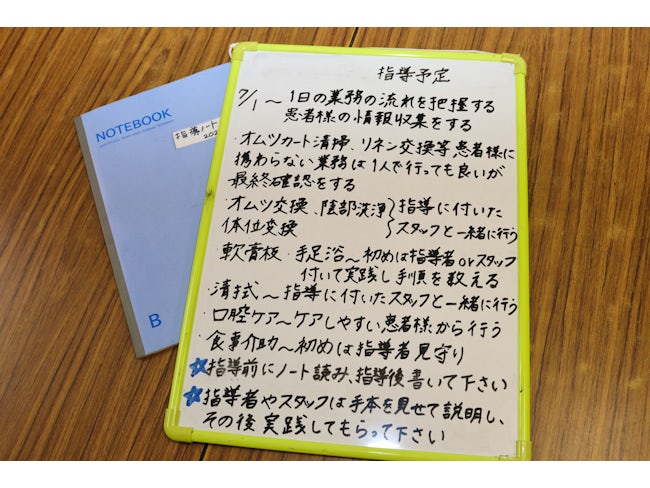 NOTEBOOK
指導ノート
202
B
指導予定
7/1～1日の業務の流れを把握する
患者様の情報収集をする
・オムツカート清掃、リネン交換等患者様に
携わらない業務は1人で行っても良いが
最終確認をする
・オムツ交換、陰部洗浄 }指導に付いた
体位交換 スタッフと一緒に行う
・軟膏板・手足浴～初めは指導者orスタッフ
付いて実践し手順を教える
・清拭～指導に付いたスタッフと一緒に行う
・口腔ケア～ケアしやすい患者様から行う
・食事介助～初めは指導者見守り
☆指導前にノート読み、指導後書いて下さい
☆指導者やスタッフは手本を見せて説明し、
その後実践してもらって下さい